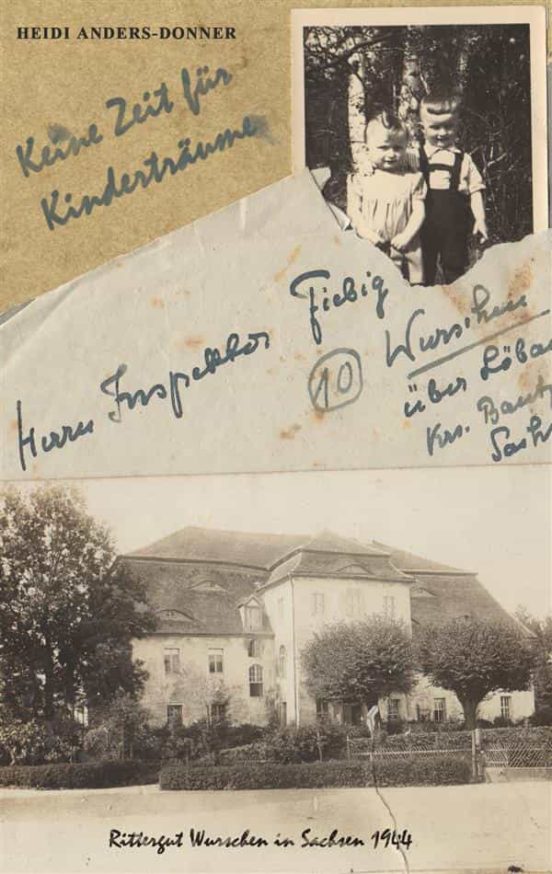 HEIDI ANDERS-DONNER
Keine Zeit für
Kinderträume
Herrn Inspektor Fiebig
(10) Wurschen
über Löbau
Krs. Baut
Sach
Rittergut Wurschen in Sachsen 1944